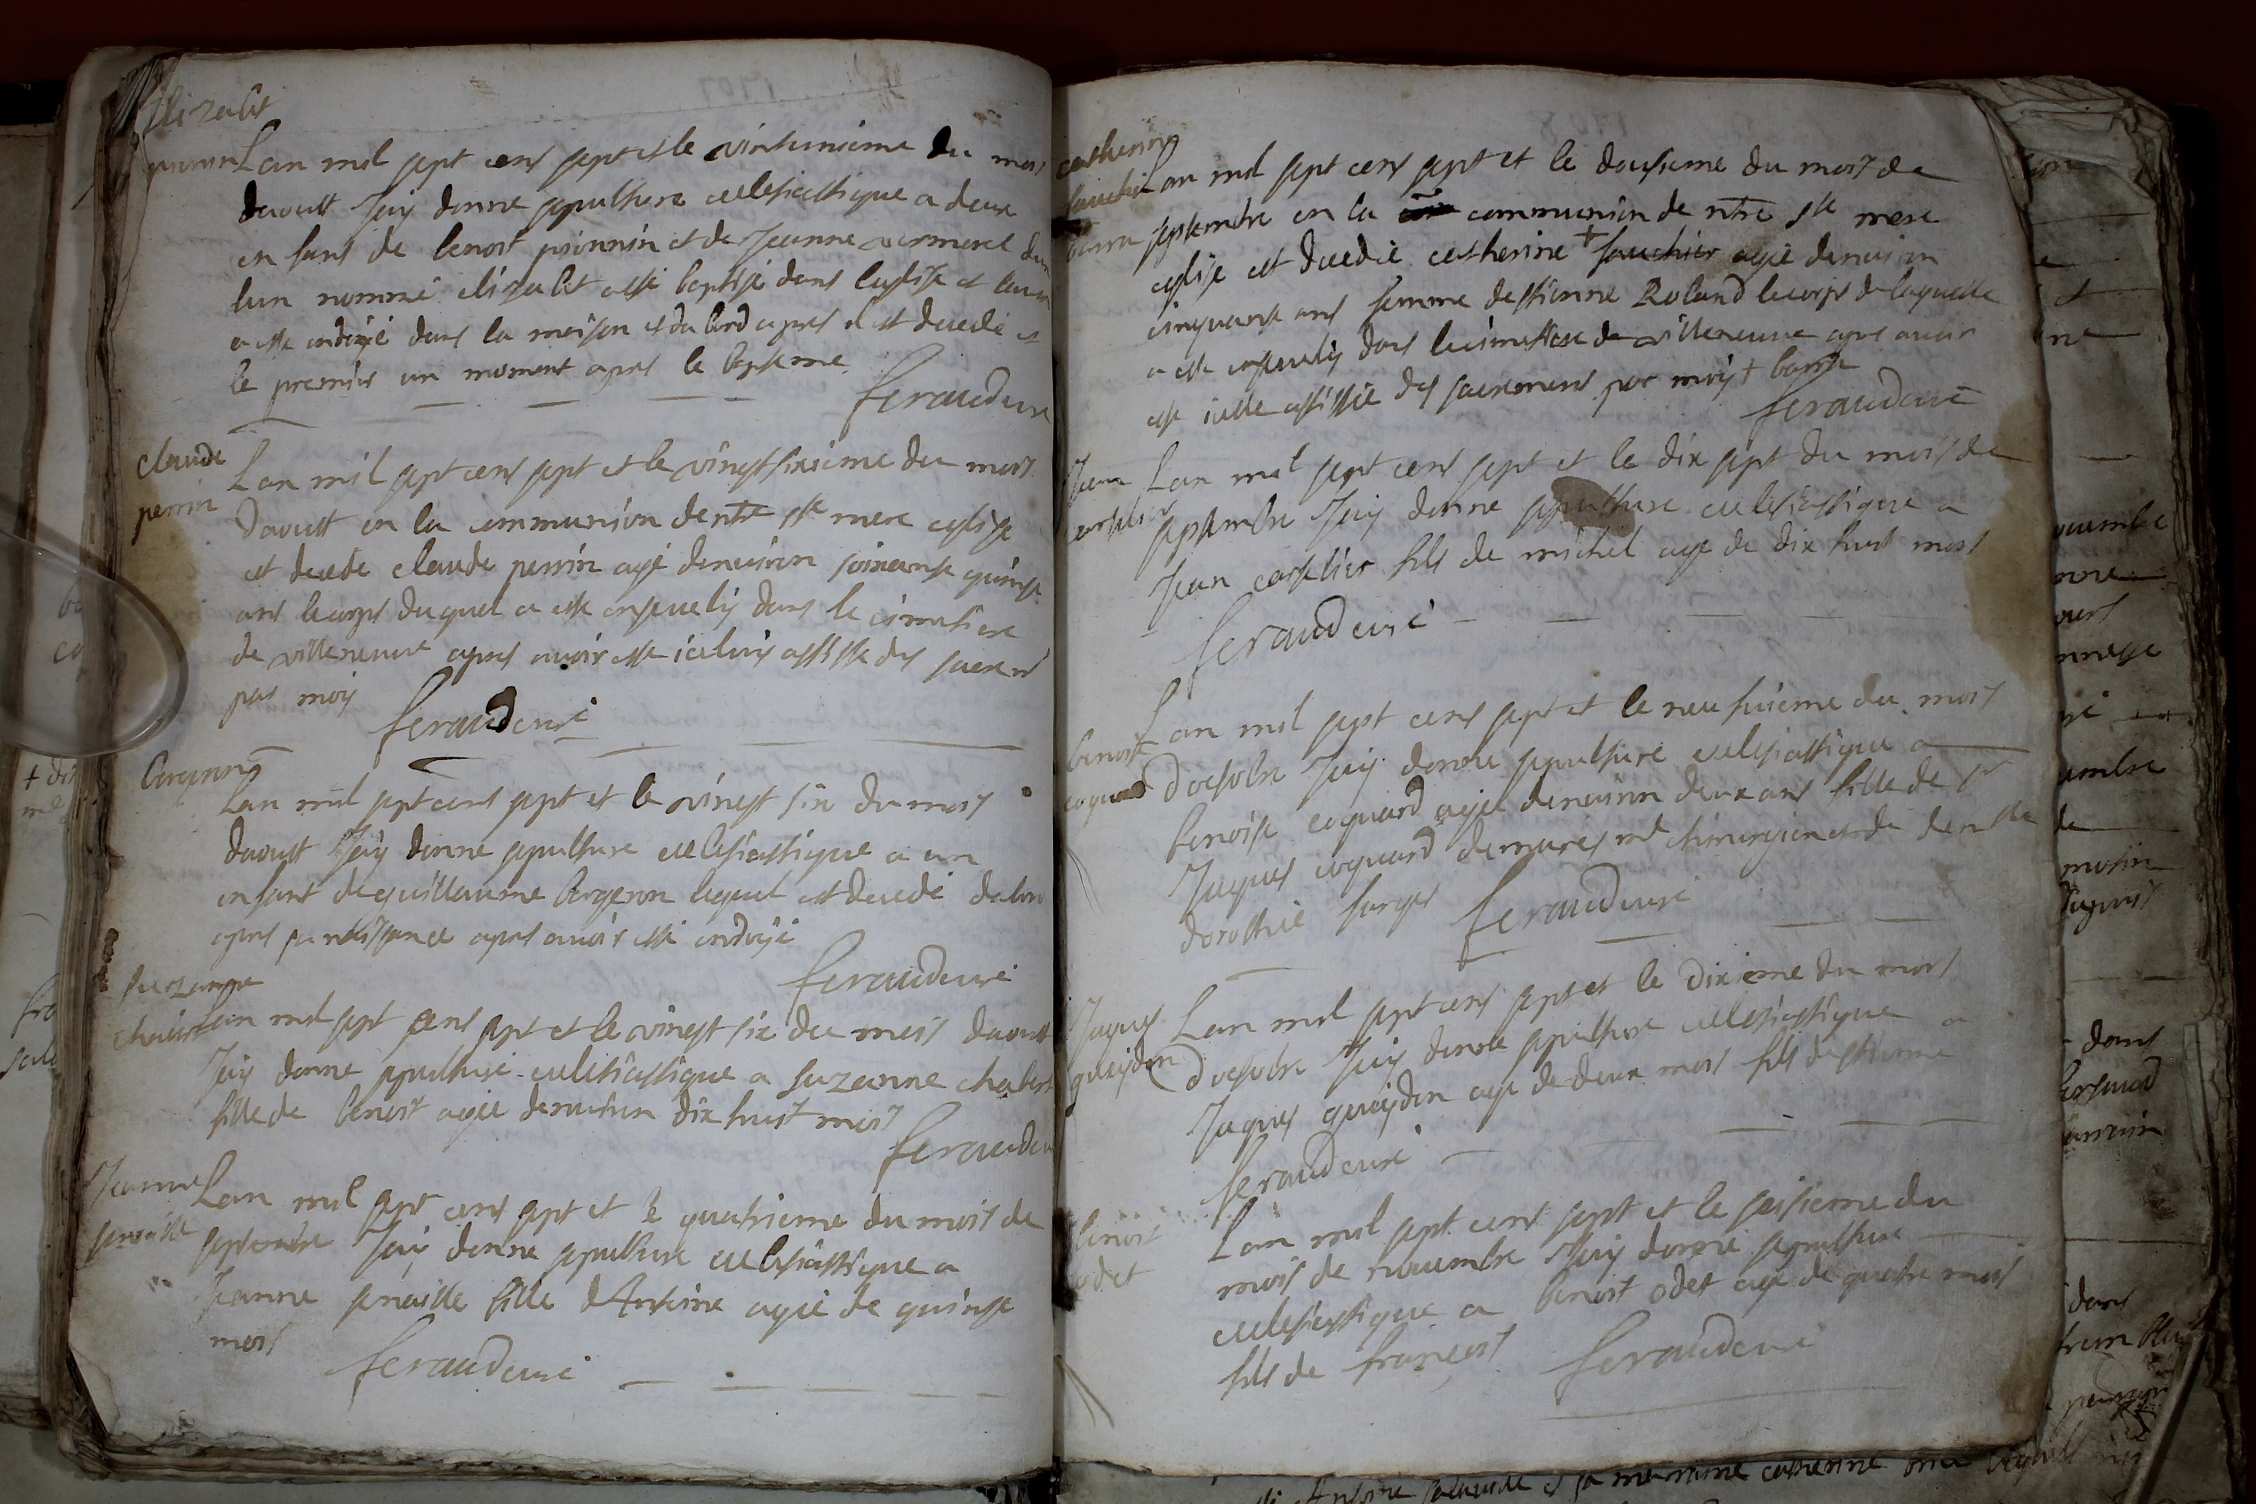 Elizabet
pionnin
Lan mil sept cens sept et le vintunieme du mois
daoust Jay donne sepulture eclesiastique a deux
enfans de benoit pionnin et de Jeanne
lun nomme elizabet a esté baptisé dans leglise et lautre
a este ondoyé dans la maison et dabord apres il est decedé et
le premier un moment apres le bapteme
feraud curé
claude
perrin
Lan mil sept cens sept et le vingt sixieme du mois
daoust en la communion de ntre ste mere eglise
est decede claude perrin agé denuiron soixante quinse
ans le corps duquel a este enseuely dans le cimetiere
de villeneuue apres auoir este iceluy assiste des sacrem
par moy
feraud curé
bergeron
Lan mil sept cens sept et le vingt six du mois
daoust Jay donne sepulture eclesiastique a un
enfant de guillaume bergeron lequel est decedé dabord
apres sa naissance apres auoir esté ondoyé
feraud curé
suzanne
chabert
Lan mil sept cens sept et le vingt six du mois daoust
Jay donne sepulture eclesiastique a suzanne chabert
fille de benoit agée denuiron dix huit mois
feraud curé
Jeanne
Lan mil sept cens sept et le quatrieme du mois de
septembre Jay donne sepulture eclesiastique a
Jeanne fille dAntoine agée de quinse
mois
feraud curé
catherine
fauchier
barra
Lan mil sept cens sept et le dousieme du mois de
septembre en la communion de ntre ste mere
eglise est decedée catherine + fauchier agée denuiron
cinquante ans femme destienne Roland le corps de laquelle
a este enseuely dans le cimetiere de villeneuue apres auoir
este icelle assistée des sacremens par moy + barra
feraud curé
Jean
Lan mil sept cens sept et le dix sept du mois de
septembre Jay donne sepulture eclesiastique a
Jean fils de michel age de dix huit mois
feraud curé
benoite
coquard
Lan mil sept cens sept et le neufuieme du mois
doctobre Jay donné sepulture eclesiastique a
benoite coquard agée denuiron deux ans fille de sr
Jaques coquard me chirurgien et de demlle
dorothée
feraud curé
Jaques
guaydon
Lan mil sept cens sept et le dixieme du mois
doctobre Jay donné sepulture eclesiastique a
Jaques guaydon age de deux mois fils destienne
feraud curé
benoit
odet
Lan mil sept cens sept et le seisieme du
mois de nouembre Jay donné sepulture
eclesiastique a benoit odet agé de quatre mois
fils de françois
feraud curé